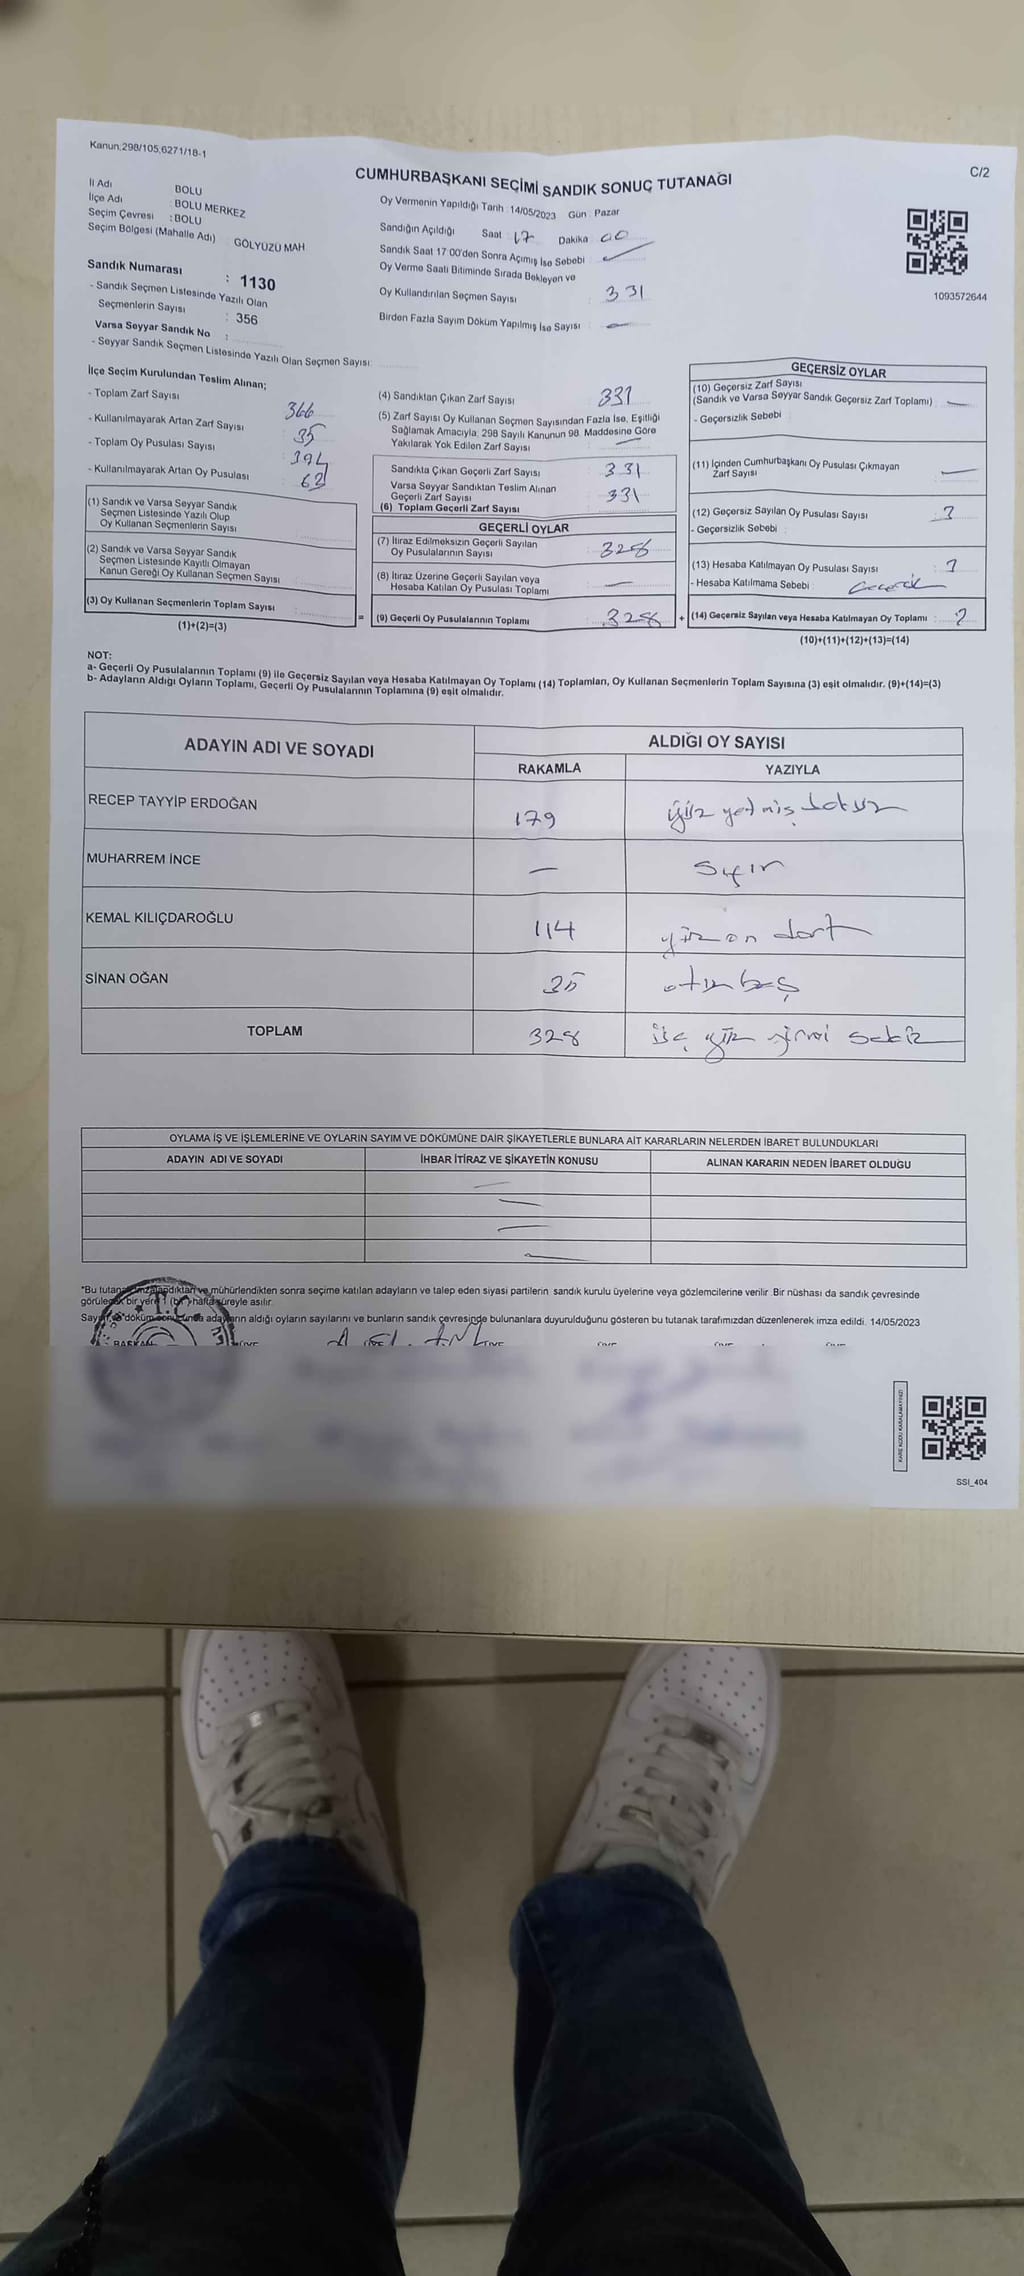 Kanun:298/105,6271/18-1
C/2
CUMHURBAŞKANI SEÇİMİ SANDIK SONUÇ TUTANAĞI
İl Adı : BOLU
İlçe Adı : BOLU MERKEZ
Seçim Çevresi : BOLU
Seçim Bölgesi (Mahalle Adı) : GÖLYÜZÜ MAH
Sandık Numarası : 1130
- Sandık Seçmen Listesinde Yazılı Olan
Seçmenlerin Sayısı : 356
Varsa Seyyar Sandık No :
- Seyyar Sandık Seçmen Listesinde Yazılı Olan Seçmen Sayısı:
Oy Vermenin Yapıldığı Tarih :14/05/2023 Gün : Pazar
Sandığın Açıldığı Saat 17 Dakika 00
Sandık Saat 17 00'den Sonra Açımış İse Sebebi :
Oy Verme Saati Bitiminde Sırada Bekleyen ve
Oy Kullandırılan Seçmen Sayısı : 331
Birden Fazla Sayım Döküm Yapılmış İse Sayısı : —
1093572644
İlçe Seçim Kurulundan Teslim Alınan;
- Toplam Zarf Sayısı : 366
- Kullanılmayarak Artan Zarf Sayısı : 35
- Toplam Oy Pusulası Sayısı : 394
- Kullanılmayarak Artan Oy Pusulası :
(1) Sandık ve Varsa Seyyar Sandık
Seçmen Listesinde Yazılı Olup
Oy Kullanan Seçmenlerin Sayısı :
(2) Sandık ve Varsa Seyyar Sandık
Seçmen Listesinde Kayıtlı Olmayan
Kanun Gereği Oy Kullanan Seçmen Sayısı :
(3) Oy Kullanan Seçmenlerin Toplam Sayısı :
(1)+(2)=(3)
=
(4) Sandıktan Çıkan Zarf Sayısı : 331
(5) Zarf Sayısı Oy Kullanan Seçmen Sayısından Fazla İse, Eşitliği
Sağlamak Amacıyla, 298 Sayılı Kanunun 98. Maddesine Göre
Yakılarak Yok Edilen Zarf Sayısı : —
Sandıkta Çıkan Geçerli Zarf Sayısı : 331
Varsa Seyyar Sandıktan Teslim Alınan
Geçerli Zarf Sayısı : 331
(6) Toplam Geçerli Zarf Sayısı :
GEÇERLİ OYLAR
(7) İtiraz Edilmeksizin Geçerli Sayılan
Oy Pusulalarının Sayısı : 328
(8) İtiraz Üzerine Geçerli Sayılan veya
Hesaba Katılan Oy Pusulası Toplamı : —
(9) Geçerli Oy Pusulalarının Toplamı : 328
+
GEÇERSİZ OYLAR
(10) Geçersiz Zarf Sayısı
(Sandık ve Varsa Seyyar Sandık Geçersiz Zarf Toplamı) : —
- Geçersizlik Sebebi :
(11) İçinden Cumhurbaşkanı Oy Pusulası Çıkmayan
Zarf Sayısı : —
(12) Geçersiz Sayılan Oy Pusulası Sayısı : 3
- Geçersizlik Sebebi :
(13) Hesaba Katılmayan Oy Pusulası Sayısı :
- Hesaba Katılmama Sebebi :
(14) Geçersiz Sayılan veya Hesaba Katılmayan Oy Toplamı :
(10)+(11)+(12)+(13)=(14)
NOT:
a- Geçerli Oy Pusulalarının Toplamı (9) ile Geçersiz Sayılan veya Hesaba Katılmayan Oy Toplamı (14) Toplamları, Oy Kullanan Seçmenlerin Toplam Sayısına (3) eşit olmalıdır. (9)+(14)=(3)
b- Adayların Aldığı Oyların Toplamı, Geçerli Oy Pusulalarının Toplamına (9) eşit olmalıdır.
ADAYIN ADI VE SOYADI
ALDIĞI OY SAYISI
RAKAMLA YAZIYLA
RECEP TAYYİP ERDOĞAN 179 yüz yetmiş dokuz
MUHARREM İNCE — Sıfır
KEMAL KILIÇDAROĞLU 114 yüz on dört
SİNAN OĞAN 35 otuz beş
TOPLAM 328 üç yüz yirmi sekiz
OYLAMA İŞ VE İŞLEMLERİNE VE OYLARIN SAYIM VE DÖKÜMÜNE DAİR ŞİKAYETLERLE BUNLARA AİT KARARLARIN NELERDEN İBARET BULUNDUKLARI
ADAYIN ADI VE SOYADI İHBAR İTİRAZ VE ŞİKAYETİN KONUSU ALINAN KARARIN NEDEN İBARET OLDUĞU
*Bu tutanak imzalandıktan ve mühürlendikten sonra seçime katılan adayların ve talep eden siyasi partilerin sandık kurulu üyelerine veya gözlemcilerine verilir. Bir nüshası da sandık çevresinde
görülecek bir yere 1 (bir) hafta süreyle asılır.
Sayım ve döküm sonucunda adayların aldığı oyların sayılarını ve bunların sandık çevresinde bulunanlara duyurulduğunu gösteren bu tutanak tarafımızdan düzenlenerek imza edildi. 14/05/2023
T.C.
BAŞKAN ÜYE ÜYE ÜYE ÜYE ÜYE
KARE KODU KARALAMAYINIZ!
SSI_404